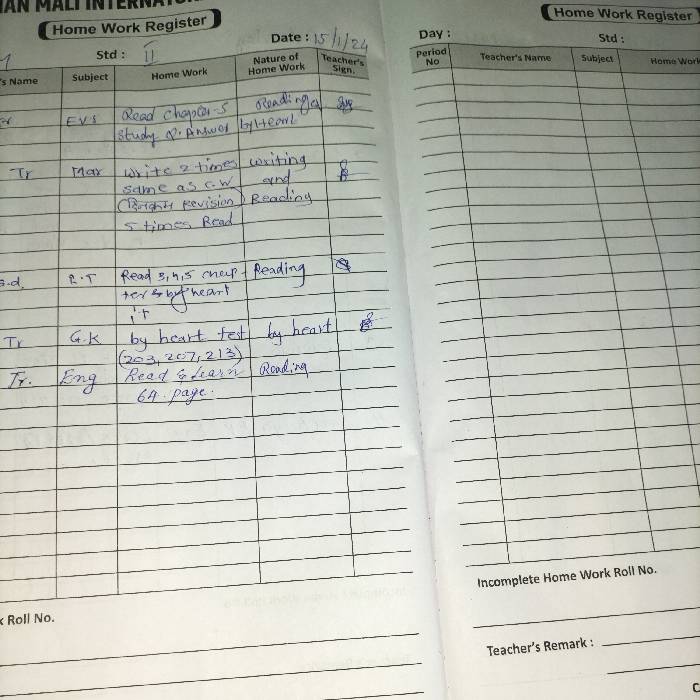 IAN MALI INTERNAT
Home Work Register
Date : 15/1/24
Std : II
's Name Subject Home Work Nature of Home Work Teacher's Sign.
EVS Read Chapter-5 Reading &
Study Q. Answer by Heart
Tr Mar write 2 times writing
same as C.W and
Revision) Reading
5 times Read
G.d. R.T Read 3,4,5 chap- Reading
ter & by heart
it
Tr G.K by heart test by heart
(203, 207, 213)
Tr. Eng Read & Learn Reading
64. page.
k Roll No.
Home Work Register
Day :
Std :
Period No Teacher's Name Subject Home Work
Incomplete Home Work Roll No.
Teacher's Remark :